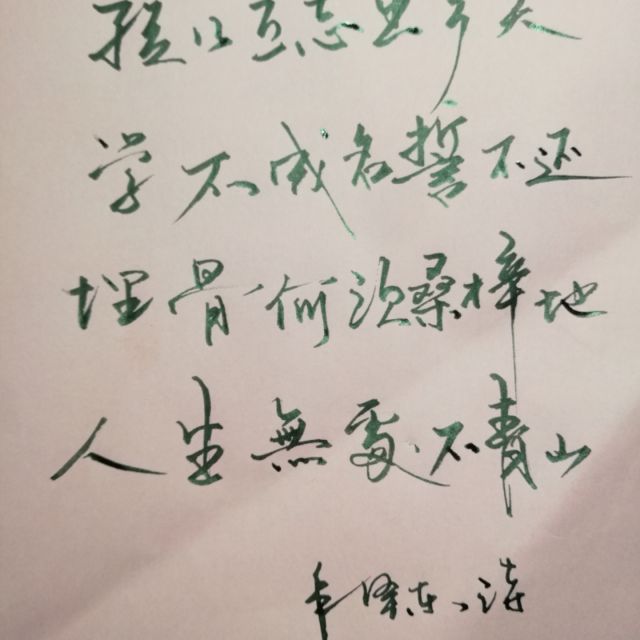 孩儿立志出乡关
学不成名誓不还
埋骨何须桑梓地
人生無處不青山
毛泽东诗